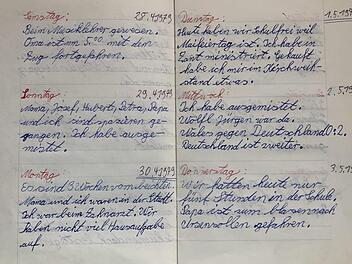 Samstag: 28.4.1979
Beim Musiklehrer gewesen.
Oma ist um 5.00 mit dem
Zug fortgefahren.
Sonntag: 29.4.1979
Mama, Josef, Hubert, Petra, Papa
und ich sind spazieren ge-
gangen. Ich habe ausge-
mistet.
Montag 30.4.1979
Es sind 3 Wochen vom beichten.
Mama und ich waren in der Stadt.
Ich war beim Zahnarzt. Wir
haben nicht viel Hausaufgabe
auf.
Dienstag: 1.5.19
Heute haben wir Schulfrei weil
Maifeiertag ist. Ich habe in
ministriert. Gekauft
habe ich mir im
etwas.
Mittwoch: 2.5.19
Ich habe ausgemistet.
Wolfi Jürgen war da.
Wales gegen Deutschland 0:2.
Deutschland ist zweiter.
Donnerstag: 3.5.19
Wir hatten heute nur
fünf Stunden in der Schule.
Papa ist zum blasen nach
gefahren.